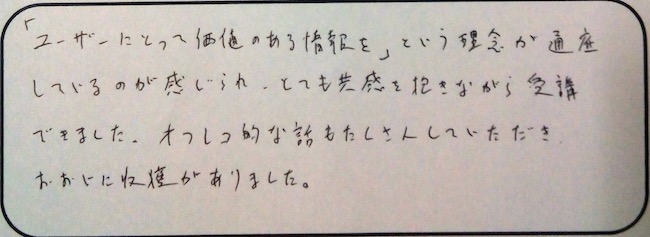 「ユーザーにとって価値のある情報を」という理念が通底
しているのが感じられ、とても共感を抱きながら受講
できました。オフレコ的な話もたくさんしていただき、
おおいに収穫がありました。